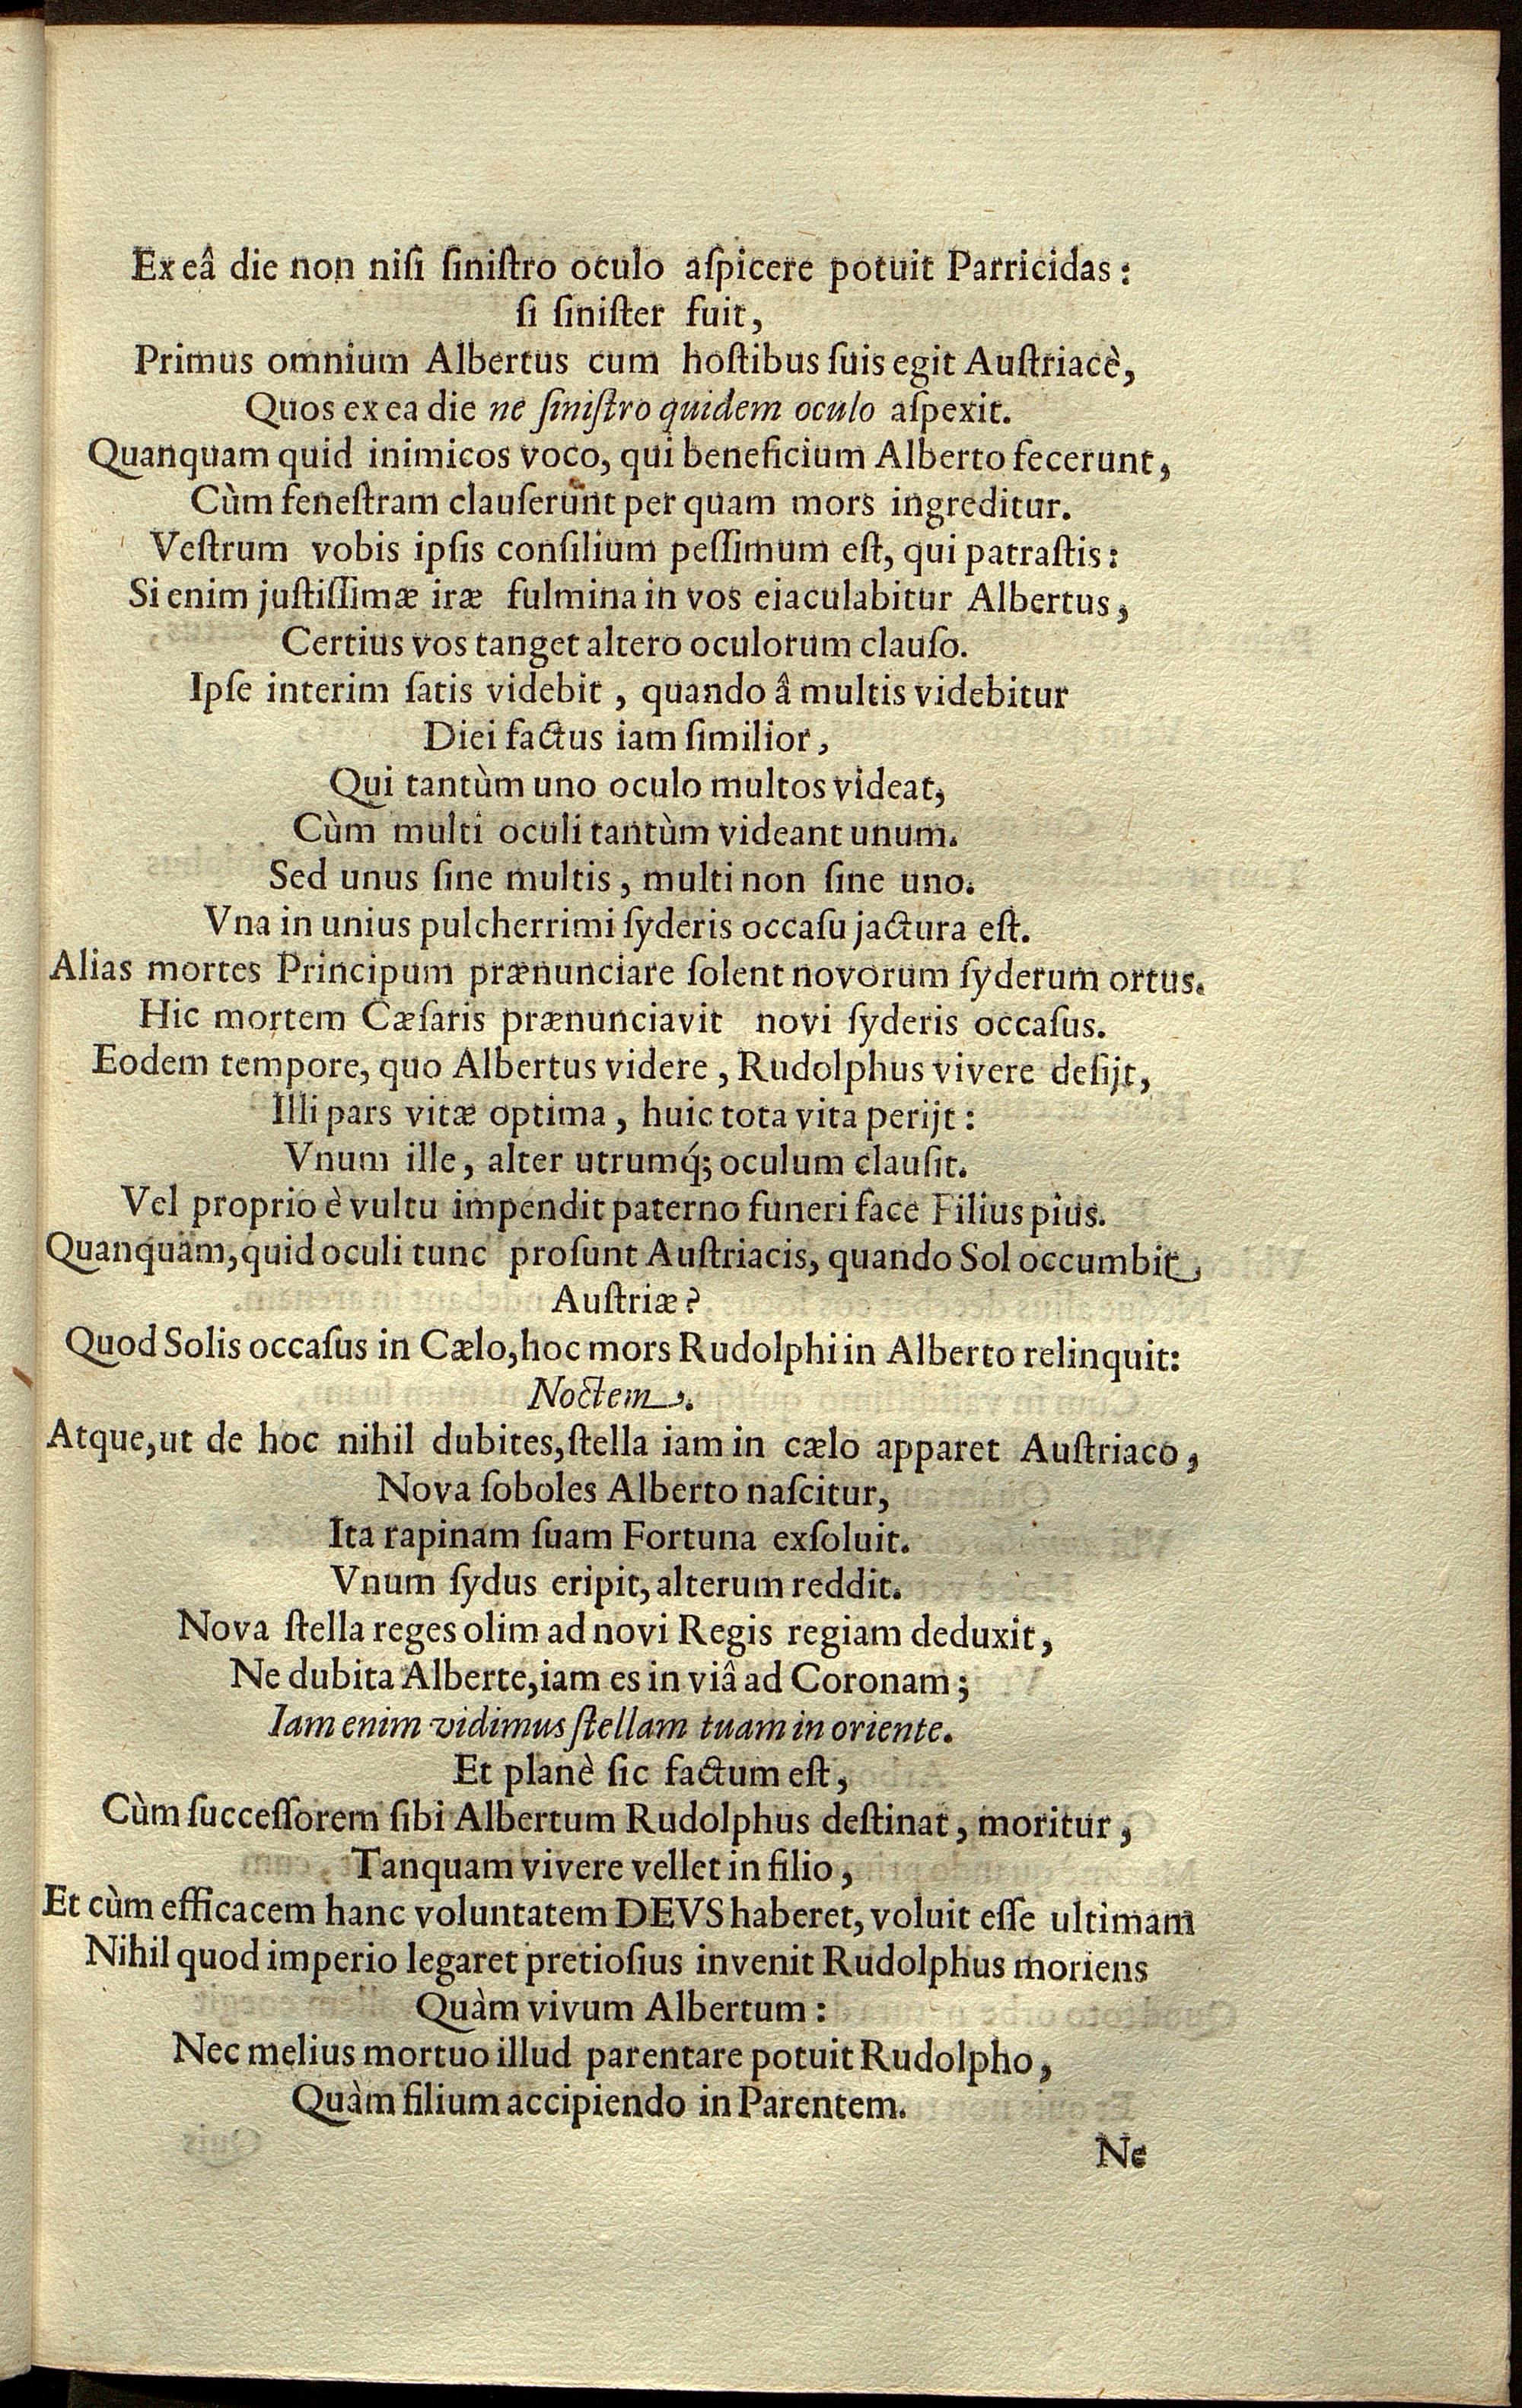 Ex eâ die non niſi ſiniſtro oculo aſpicere potuit Parricidas:
ſi ſiniſter fuit,
Primus omnium Albertus cum hoſtibus ſuis egit Auſtriacè,
Quos ex ea die ne ſiniſtro quidem oculo aſpexit.
Quanquam quid inimicos voco, qui beneficium Alberto fecerunt,
Cùm feneſtram clauſerunt per quam mors ingreditur.
Veſtrum vobis ipſis conſilium peſſimum eſt, qui patraſtis:
Si enim juſtiſſimæ iræ fulmina in vos eiaculabitur Albertus,
Certius vos tanget altero oculorum clauſo.
Ipſe interim ſatis videbit, quando â multis videbitur
Diei factus iam ſimilior,
Qui tantùm uno oculo multos videat,
Cùm multi oculi tantùm videant unum.
Sed unus ſine multis, multi non ſine uno.
Vna in unius pulcherrimi ſyderis occaſu jactura eſt.
Alias mortes Principum prænunciare ſolent novorum ſyderum ortus.
Hic mortem Cæſaris prænunciavit novi ſyderis occaſus.
Eodem tempore, quo Albertus videre, Rudolphus vivere deſijt,
Illi pars vitæ optima, huic tota vita perijt:
Vnum ille, alter utrumq́; oculum clauſit.
Vel proprio è vultu impendit paterno funeri face Filius pius.
Quanquam, quid oculi tunc proſunt Auſtriacis, quando Sol occumbit,
Auſtriæ?
Quod Solis occaſus in Cælo, hoc mors Rudolphi in Alberto relinquit:
Noctem.
Atque, ut de hoc nihil dubites, ſtella iam in cælo apparet Auſtriaco,
Nova ſoboles Alberto naſcitur,
Ita rapinam ſuam Fortuna exſoluit.
Vnum ſydus eripit, alterum reddit.
Nova ſtella reges olim ad novi Regis regiam deduxit,
Ne dubita Alberte, iam es in viâ ad Coronam;
Iam enim vidimus ſtellam tuam in oriente.
Et planè ſic factum eſt,
Cùm ſucceſſorem ſibi Albertum Rudolphus deſtinat, moritur,
Tanquam vivere vellet in filio,
Et cùm efficacem hanc voluntatem DEVS haberet, voluit eſſe ultimam
Nihil quod imperio legaret pretioſius invenit Rudolphus moriens
Quàm vivum Albertum:
Nec melius mortuo illud parentare potuit Rudolpho,
Quàm filium accipiendo in Parentem.
Ne